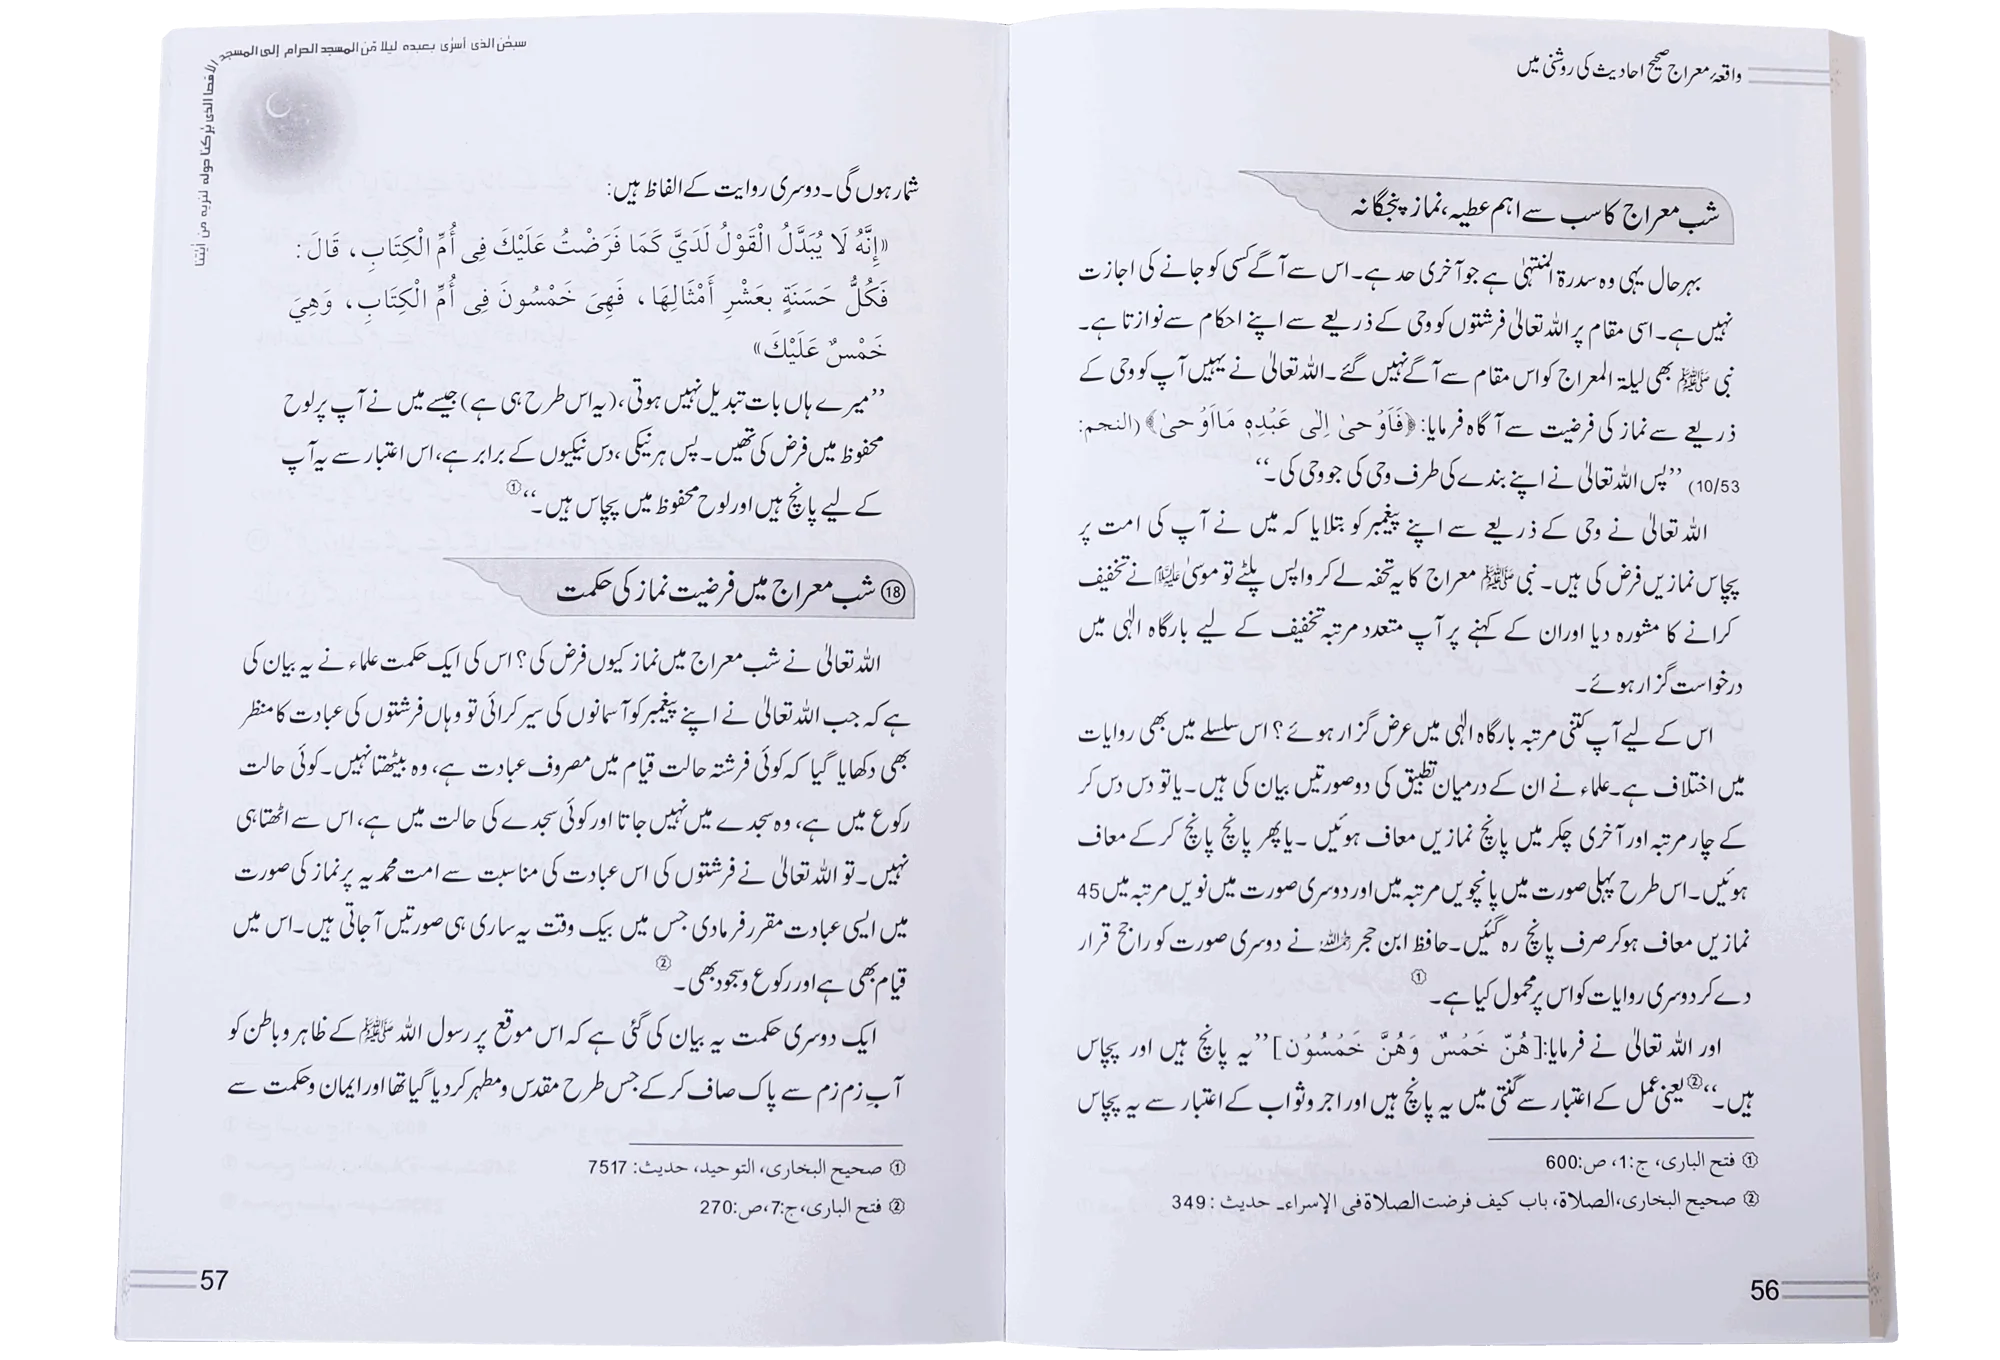 واقعۂ معراج صحیح احادیث کی روشنی میں
شب معراج کا سب سے اہم عطیہ، نماز پنجگانہ
بہر حال یہی وہ سدرۃ المنتہیٰ ہے جو آخری حد ہے۔ اس سے آگے کسی کو جانے کی اجازت
نہیں ہے۔ اسی مقام پر اللہ تعالیٰ فرشتوں کو وحی کے ذریعے سے اپنے احکام سے نوازتا ہے۔
نبی ﷺ بھی لیلۃ المعراج کو اس مقام سے آگے نہیں گئے۔ اللہ تعالیٰ نے یہیں آپ کو وحی کے
ذریعے سے نماز کی فرضیت سے آگاہ فرمایا: ﴿فَاَوۡحىٰ اِلٰى عَبۡدِهٖ مَااَوۡحىٰ﴾ (النجم:
10/53) ’’پس اللہ تعالیٰ نے اپنے بندے کی طرف وحی کی جو وحی کی۔‘‘
اللہ تعالیٰ نے وحی کے ذریعے سے اپنے پیغمبر کو بتلایا کہ میں نے آپ کی امت پر
پچاس نمازیں فرض کی ہیں۔ نبی ﷺ معراج کا یہ تحفہ لے کر واپس پلٹے تو موسیٰ علیہ السلام نے تخفیف
کرانے کا مشورہ دیا اور ان کے کہنے پر آپ متعدد مرتبہ تخفیف کے لیے بارگاہ الٰہی میں
درخواست گزار ہوئے۔
اس کے لیے آپ کتنی مرتبہ بارگاہ الٰہی میں عرض گزار ہوئے؟ اس سلسلے میں بھی روایات
میں اختلاف ہے۔ علماء نے ان کے درمیان تطبیق کی دو صورتیں بیان کی ہیں۔ یا تو دس دس کر
کے چار مرتبہ اور آخری چکر میں پانچ نمازیں معاف ہوئیں۔ یا پھر پانچ پانچ کر کے معاف
ہوئیں۔ اس طرح پہلی صورت میں پانچویں مرتبہ میں اور دوسری صورت میں نویں مرتبہ میں 45
نمازیں معاف ہو کر صرف پانچ رہ گئیں۔ حافظ ابن حجر رحمہ اللہ نے دوسری صورت کو راجح قرار
دے کر دوسری روایات کو اس پر محمول کیا ہے۔ ①
اور اللہ تعالیٰ نے فرمایا: [هُنّ خَمۡسٌ وَهُنَّ خَمۡسُوۡن] ’’یہ پانچ ہیں اور پچاس
ہیں۔‘‘② یعنی عمل کے اعتبار سے گنتی میں یہ پانچ ہیں اور اجر و ثواب کے اعتبار سے یہ پچاس
① فتح الباری، ج:1، ص:600
② صحیح البخاری، الصلاة، باب کیف فرضت الصلاة فی الإسراء۔ حدیث : 349
56
سبحٰن الذی أسرٰی بعبدہ لیلا مّن المسجد الحرام إلی المسجد الأقصا الذی بٰرکنا حولہ لنریہ من اٰیٰتنا
شمار ہوں گی۔ دوسری روایت کے الفاظ ہیں:
«إِنَّهُ لَا يُبَدَّلُ الْقَوْلُ لَدَيَّ كَمَا فَرَضْتُ عَلَيْكَ فِى أُمِّ الْكِتَابِ، قَالَ :
فَكُلُّ حَسَنَةٍ بِعَشْرِ أَمْثَالِهَا، فَهِىَ خَمْسُونَ فِى أُمِّ الْكِتَابِ، وَهِيَ
خَمْسٌ عَلَيْكَ»
’’میرے ہاں بات تبدیل نہیں ہوتی، (یہ اس طرح ہی ہے) جیسے میں نے آپ پر لوح
محفوظ میں فرض کی تھیں۔ پس ہر نیکی، دس نیکیوں کے برابر ہے، اس اعتبار سے یہ آپ
کے لیے پانچ ہیں اور لوح محفوظ میں پچاس ہیں۔‘‘①
⑱ شب معراج میں فرضیت نماز کی حکمت
اللہ تعالیٰ نے شب معراج میں نماز کیوں فرض کی؟ اس کی ایک حکمت علماء نے یہ بیان کی
ہے کہ جب اللہ تعالیٰ نے اپنے پیغمبر کو آسمانوں کی سیر کرائی تو وہاں فرشتوں کی عبادت کا منظر
بھی دکھایا گیا کہ کوئی فرشتہ حالت قیام میں مصروف عبادت ہے، وہ بیٹھتا نہیں۔ کوئی حالت
رکوع میں ہے، وہ سجدے میں نہیں جاتا اور کوئی سجدے کی حالت میں ہے، اس سے اٹھتا ہی
نہیں۔ تو اللہ تعالیٰ نے فرشتوں کی اس عبادت کی مناسبت سے امت محمدیہ پر نماز کی صورت
میں ایسی عبادت مقرر فرمادی جس میں بیک وقت یہ ساری ہی صورتیں آجاتی ہیں۔ اس میں
قیام بھی ہے اور رکوع و سجود بھی۔ ②
ایک دوسری حکمت یہ بیان کی گئی ہے کہ اس موقع پر رسول اللہ ﷺ کے ظاہر و باطن کو
آبِ زم زم سے پاک صاف کر کے جس طرح مقدس و مطہر کر دیا گیا تھا اور ایمان و حکمت سے
① صحیح البخاری، التوحید، حدیث: 7517
② فتح الباری، ج:7، ص:270
57